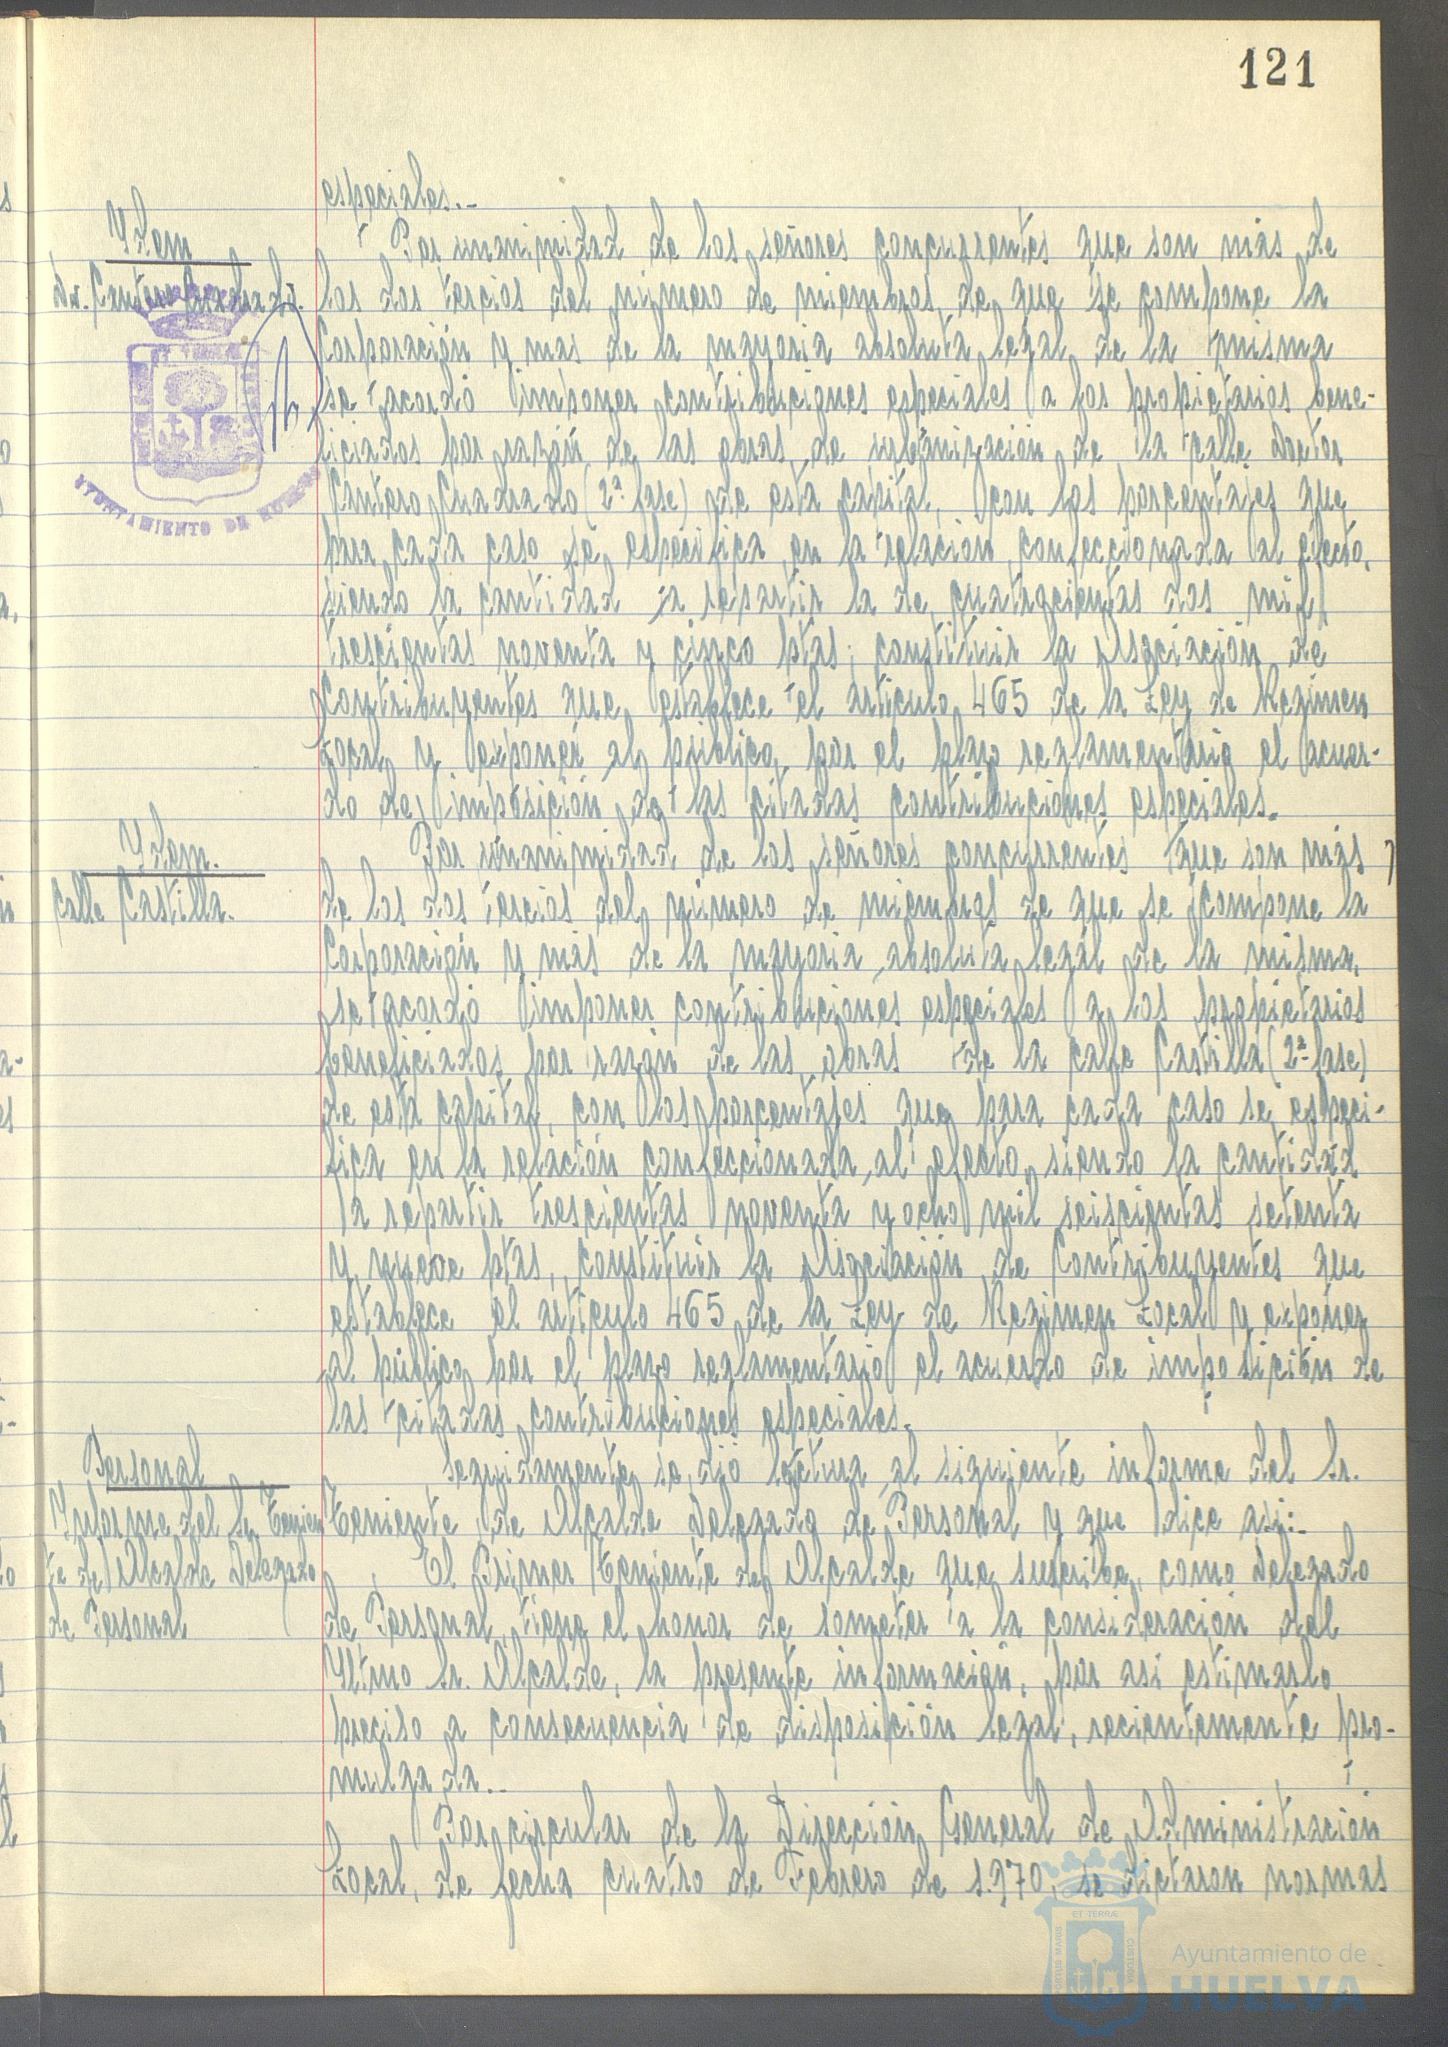 121
especiales.-
Ydem
Dr. Cantero Cuadrado.
Por unanimidad de los señores concurrentes que son más de
los dos tercios del número de miembros de que se compone la
Corporación y mas de la mayoria absoluta legal de la misma
se acordó imponer contribuciones especiales a los propietarios bene-
ficiados por razón de las obras de urbanización de la calle Doctor
Cantero Cuadrado (2ª fase) de esta capital, con los porcentajes que
para cada caso se especifica en la relación confeccionada al efecto,
siendo la cantidad a repartir la de cuatrocientas dos mil
trescientas noventa y cinco ptas; constituir la Asociación de
Contribuyentes que establece el articulo 465 de la Ley de Regimen
Local y exponer al público por el plazo reglamentario el acuer-
do de imposición de las citadas contribuciones especiales.
Ydem.
Calle Castilla.
Por unanimidad de los señores concurrentes que son más
de los dos tercios del número de miembros de que se compone la
Corporación y más de la mayoria absoluta legal de la misma,
se acordó imponer contribuciones especiales a los propietarios
beneficiados por razón de las obras de la calle Castilla (2ª fase)
de esta capital, con los porcentajes que para cada caso se especi-
fica en la relación confeccionada al efecto, siendo la cantidad
a repartir trescientas noventa y ocho mil seiscientas setenta
y nueve ptas, constituir la Asociación de Contribuyentes que
establece el artículo 465 de la Ley de Regimen Local y exponer
al público por el plazo reglamentario el acuerdo de imposición de
las citadas contribuciones especiales.
Personal
Informe del Sr. Tenien
te de Alcalde Delegado
de Personal
Seguidamente se dió lectura al siguiente informe del Sr.
Teniente de Alcalde Delegado de Personal y que dice asi:-
El Primer Teniente de Alcalde que suscribe, como Delegado
de Personal, tiene el honor de someter a la consideración del
Yltmo Sr. Alcalde, la presente información, por asi estimarlo
preciso a consecuencia de disposición legal, recientemente pro-
mulgada..
Por circular de la Dirección General de Administración
Local, de fecha cuatro de Febrero de 1.970, se dictaron normas
AYUNTAMIENTO DE HUELVA
Ayuntamiento de
HUELVA